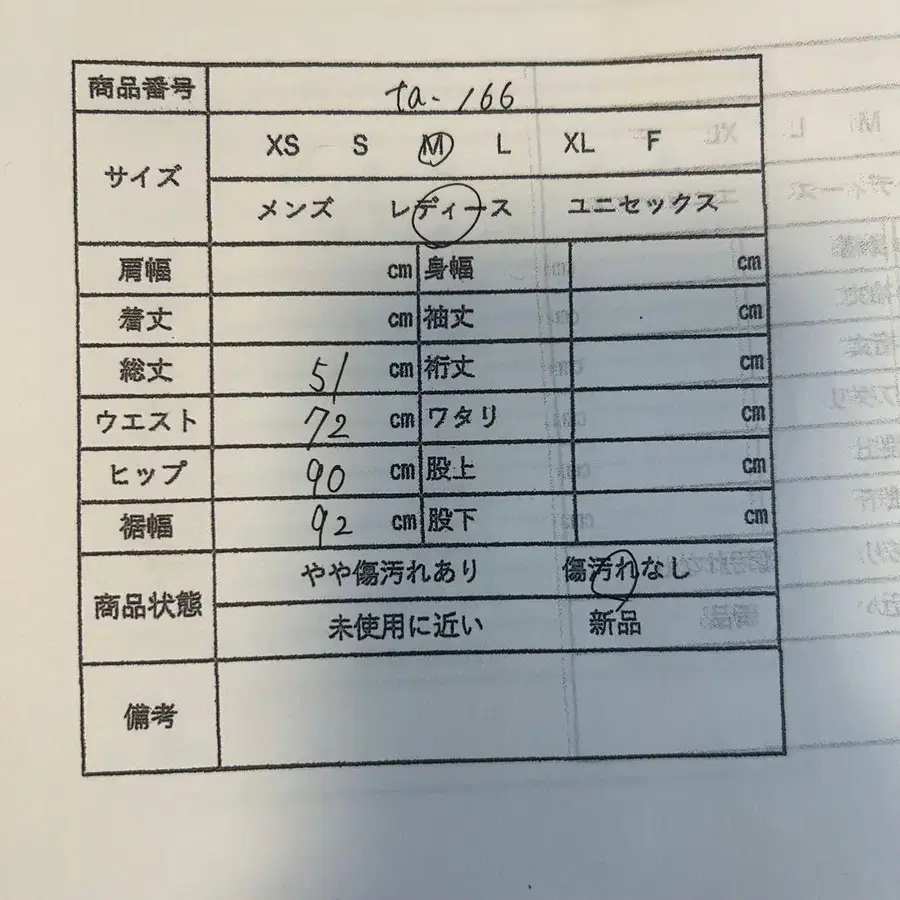 商品番号 ta-166
サイズ XS S M L XL F
メンズ レディース ユニセックス
肩幅 cm 身幅 cm
着丈 cm 袖丈 cm
総丈 51 cm 裄丈 cm
ウエスト 72 cm ワタリ cm
ヒップ 90 cm 股上 cm
裾幅 92 cm 股下 cm
商品状態 やや傷汚れあり 傷汚れなし
未使用に近い 新品
備考